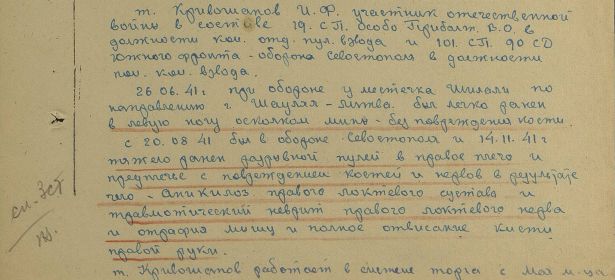 т. Кривошапов И.Ф. участник отечественной
войны в составе 19. с.п. Особо Прибалт. В.О. в
должности ком. отд. пул. взвода и 101. СП. 90 СД
Южного фронта - оборона Севостополя в должности
пом. ком. взвода.
26 06. 41 г при обороне у местечка Шикали по
направлению г. Шауляя - Литва. был легко ранен
в левую ногу осколком мины - без повреждения кости.
с 20. 08 41 был в обороне Севостополя и 14. 11. 41 г
тяжело ранен разрывной пулей в правое плечо и
предплечье с повреждением костей и нервов в результате
чего - анкилоз правого локтевого сустава и
травмотический неврит правого локтевого нерва
и отрафия мышц и полное отвисание кисти
правой руки.
т. Кривошапов работает в системе торга с Мая м-ца